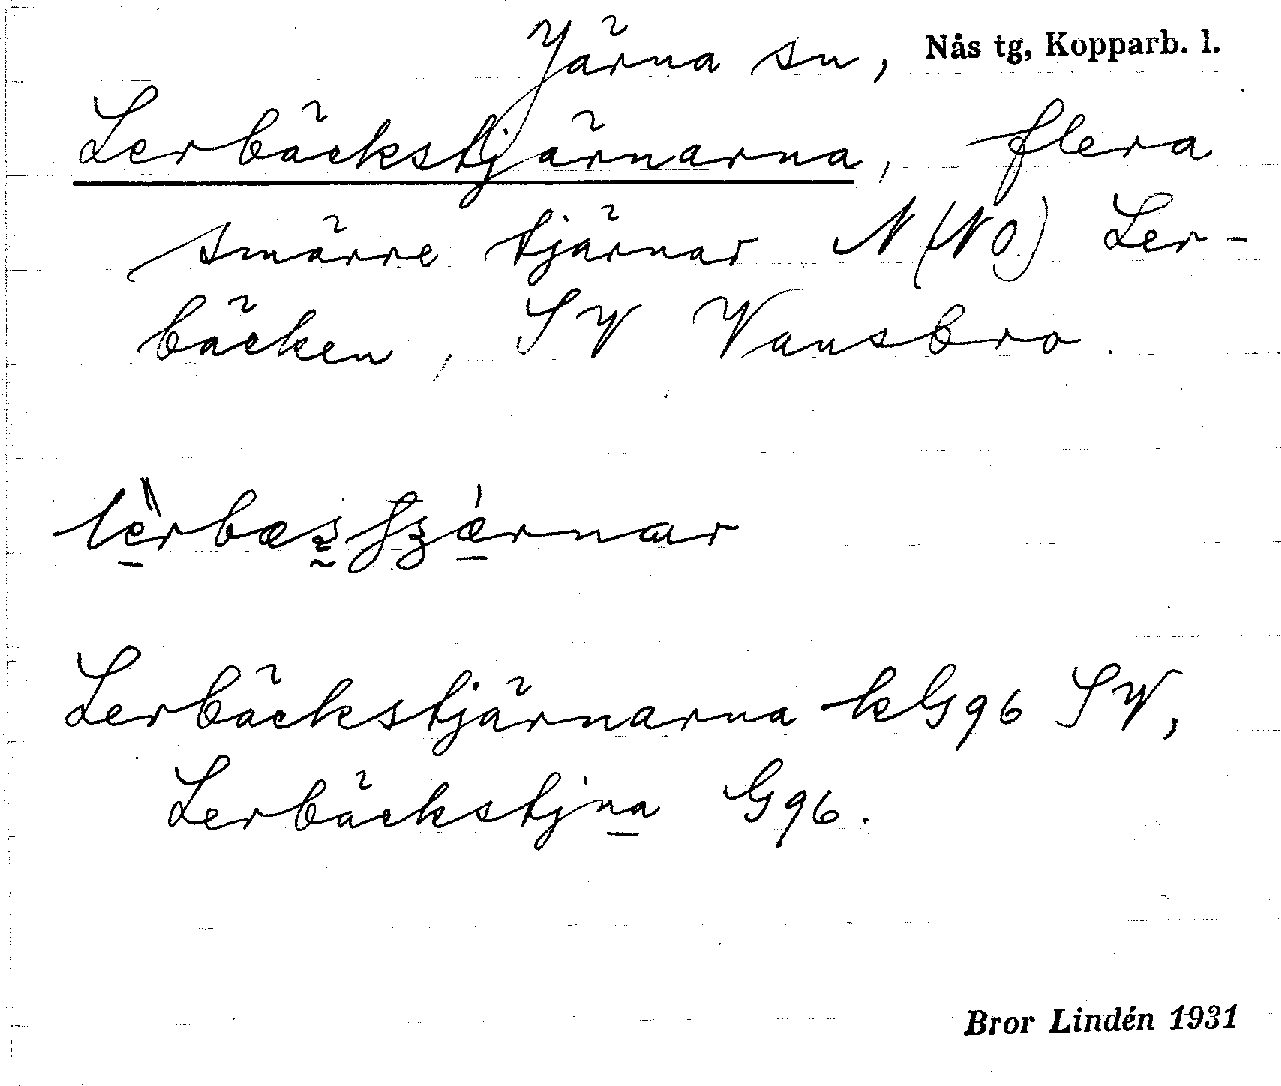 Järna sn, Nås tg, Kopparb. l.
Lerbäckstjärnarna, flera
smärre tjärnar N (NO) Ler-
bäcken, SV Vansbro.
Lerbäckstjärnarna kG96 SV,
Lerbäckstjna G96.
Bror Lindén 1931